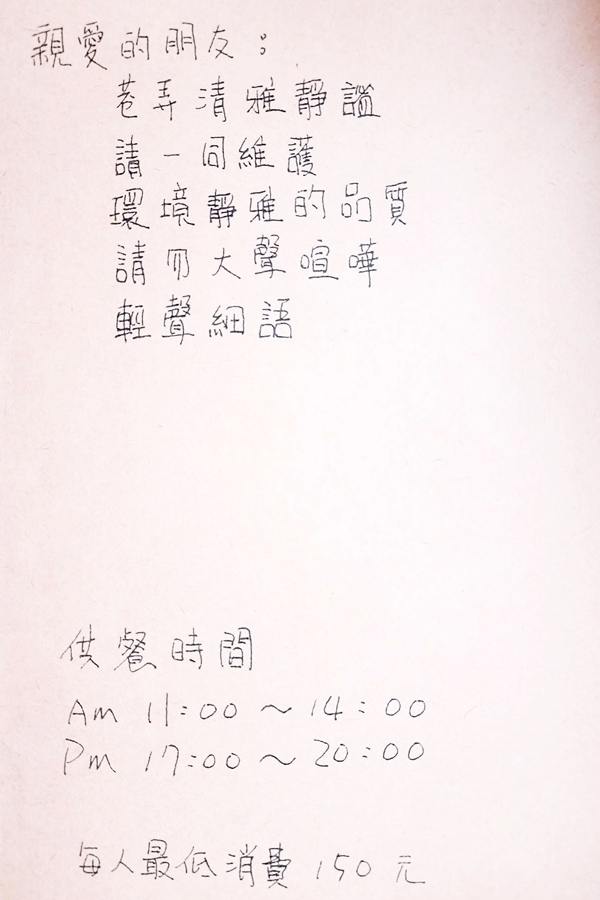 親愛的朋友：
巷弄清雅靜謐
請一同維護
環境靜雅的品質
請勿大聲喧嘩
輕聲細語
供餐時間
Am 11:00～14:00
Pm 17:00～20:00
每人最低消費 150 元